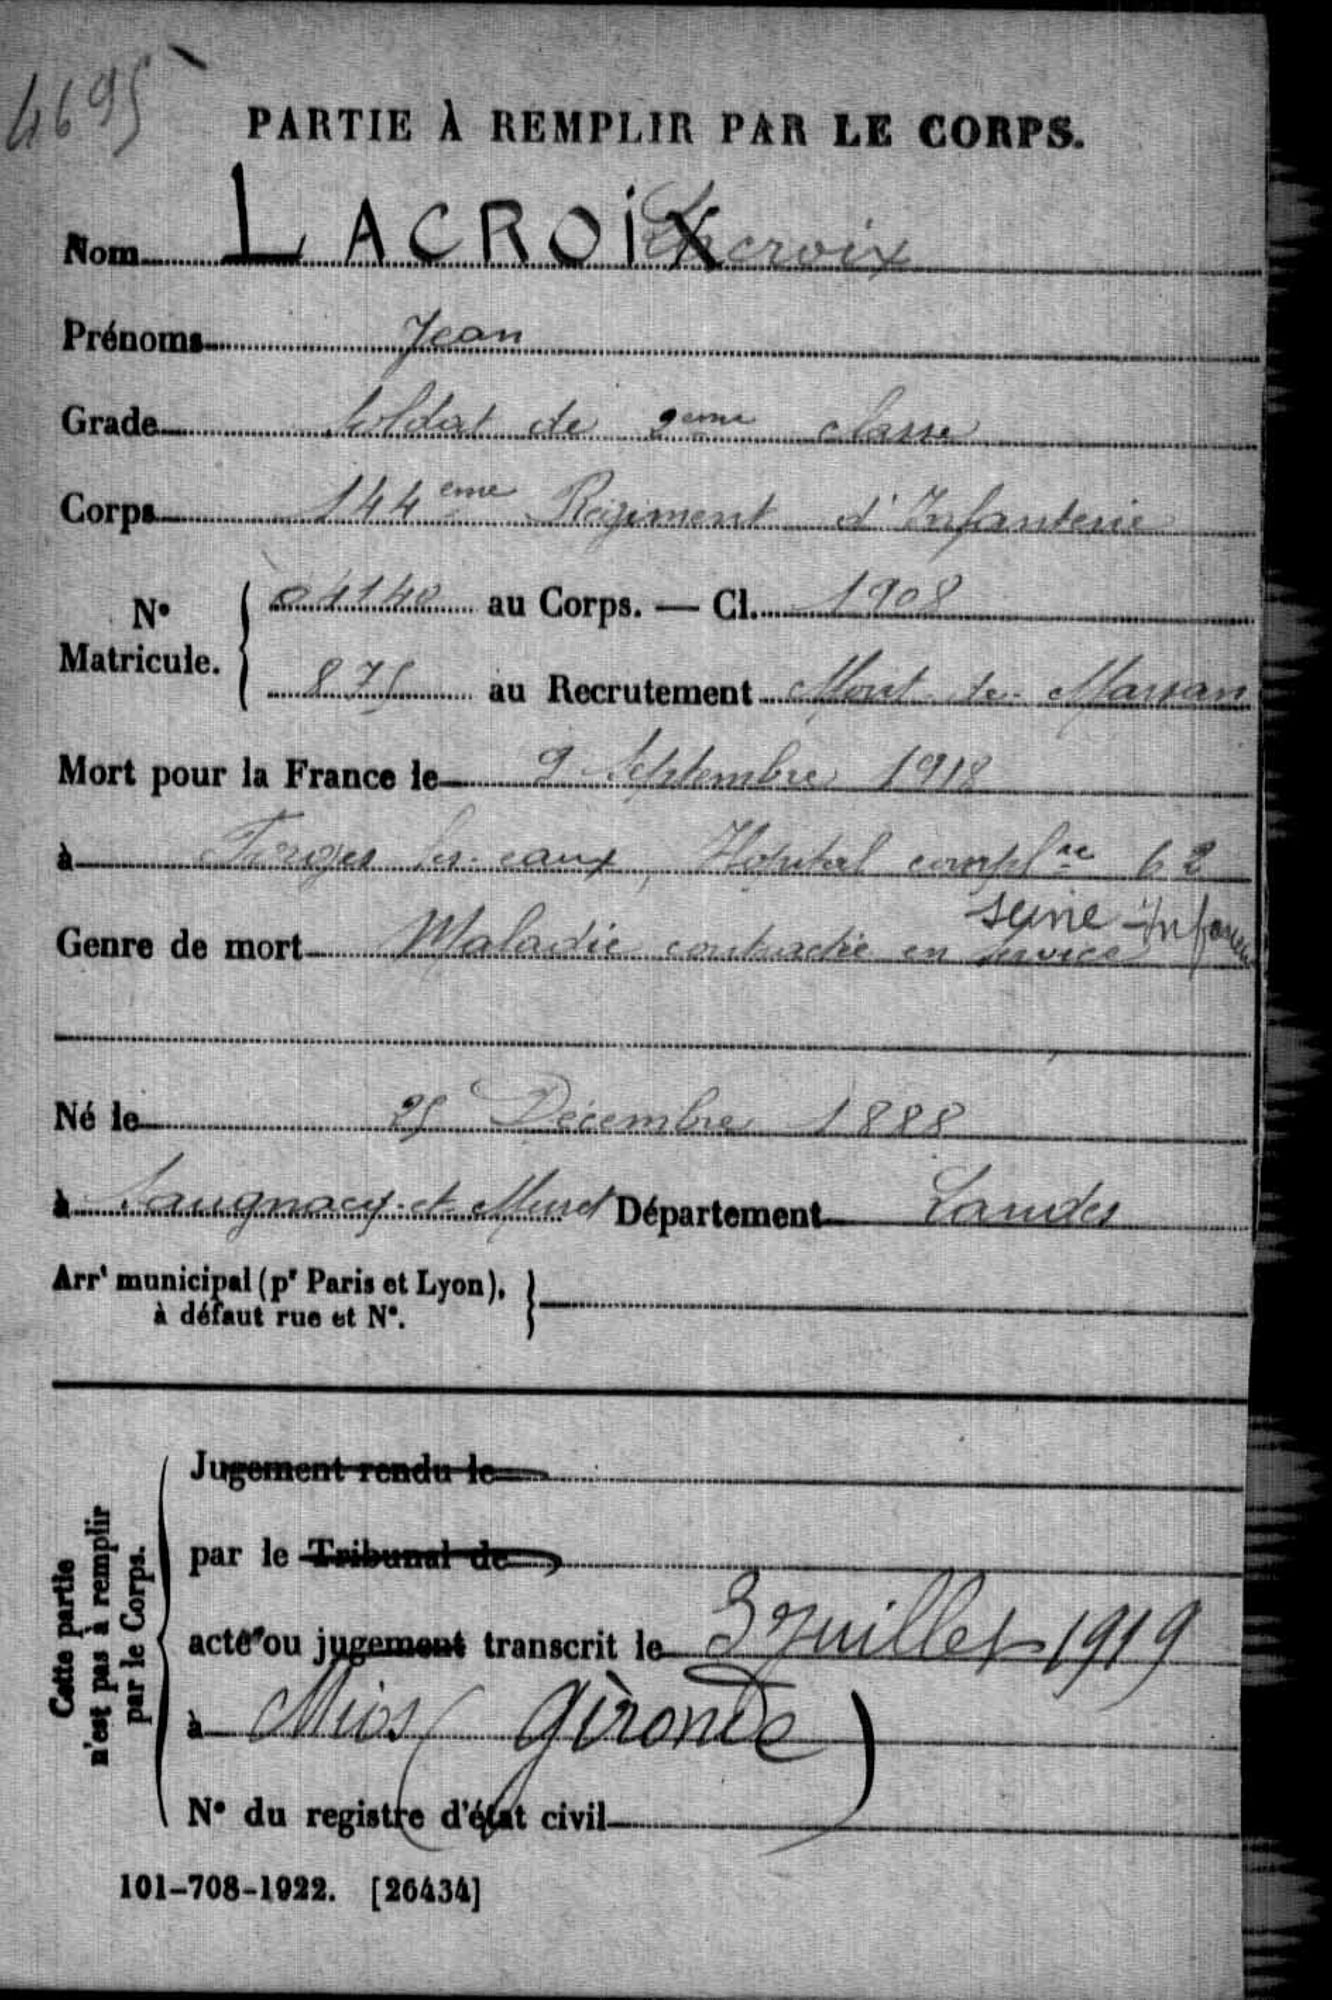 4695
PARTIE À REMPLIR PAR LE CORPS.
Nom LACROiX Lacroix
Prénoms Jean
Grade Soldat de 2eme classe
Corps 144eme Régiment d'Infanterie
No Matricule. { 04140 au Corps. — Cl. 1908
875 au Recrutement Mont-de-Marsan
Mort pour la France le 9 Septembre 1918
à Forges les-eaux, Hopital complre 62
seine-Inférieure
Genre de mort Maladie contractée en service
Né le 25 Décembre 1888
à Saugnacq-et-Muret Département Landes
Arrt municipal (pr Paris et Lyon),
à défaut rue et No.
Cette partie
n'est pas à remplir
par le Corps.
Jugement rendu le
par le Tribunal de
acte ou jugement transcrit le 3 Juillet 1919
à Mios (Gironde)
No du registre d'état civil
101-708-1922. [26434]